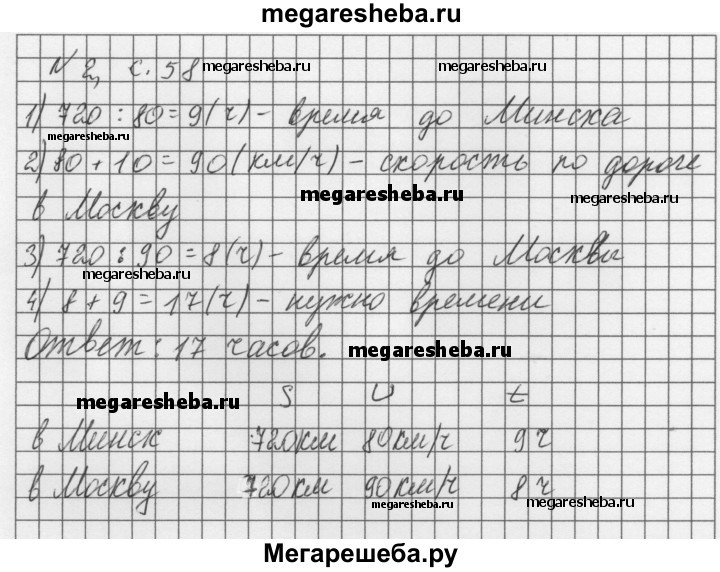 megaresheba.ru
N 2, с. 58 megaresheba.ru megaresheba.ru
1) 720 : 80 = 9 (ч) - время до Минска
megaresheba.ru
2) 80 + 10 = 90 (км/ч) - скорость по дороге
megaresheba.ru megaresheba.ru
в Москву
3) 720 : 90 = 8 (ч) - время до Москвы
megaresheba.ru
4) 8 + 9 = 17 (ч) - нужно времени
Ответ: 17 часов. megaresheba.ru
megaresheba.ru S U t
в Минск 720 км 80 км/ч 9 ч
в Москву 720 км 90 км/ч 8 ч
megaresheba.ru megaresheba.ru
Мегарешеба.ру